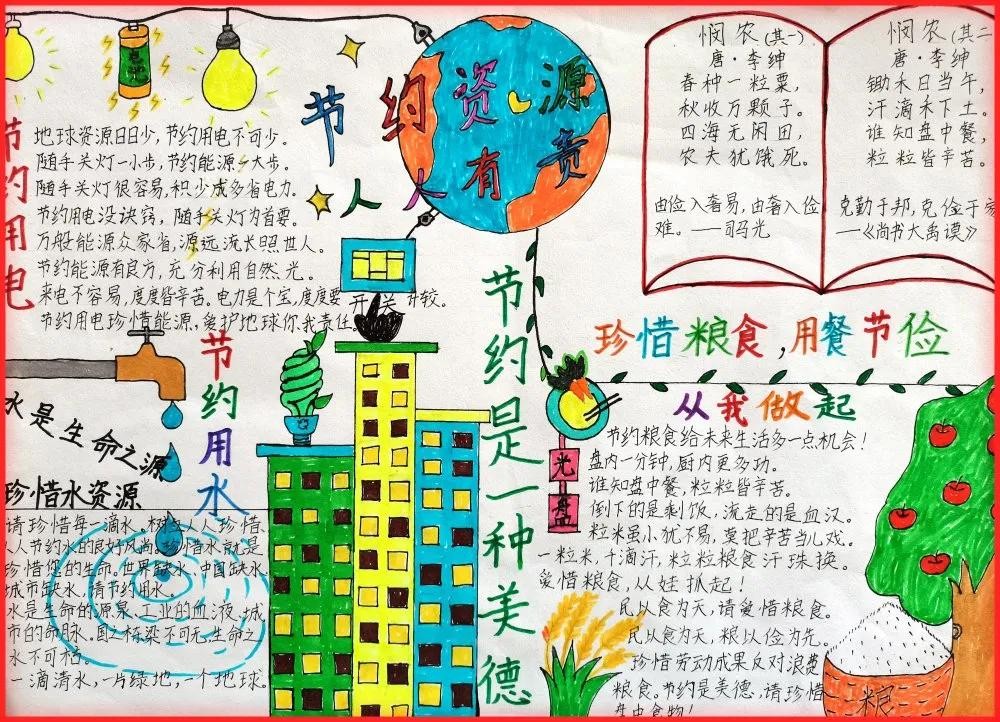 节约资源
人人有责
电池
节约用电
地球资源日日少,节约用电不可少。
随手关灯一小步,节约能源一大步。
随手关灯很容易,积少成多省电力。
节约用电没诀窍,随手关灯为首要。
万般能源众家省,源远流长照世人。
节约能源有良方,充分利用自然光。
来电不容易,度度皆辛苦。电力是个宝,度度要计较。
节约用电珍惜能源,爱护地球你我责任。
开 关
悯农(其一)
唐·李绅
春种一粒粟,
秋收万颗子。
四海无闲田,
农夫犹饿死。
由俭入奢易,由奢入俭
难。——司马光
悯农(其二
唐·李绅
锄禾日当午,
汗滴禾下土。
谁知盘中餐,
粒粒皆辛苦。
克勤于邦,克俭于家
—《尚书大禹谟》
节约用水
水是生命之源
珍惜水资源
请珍惜每一滴水。树立人人珍惜、
人人节约水的良好风尚。珍惜水就是
珍惜您的生命。世界缺水、中国缺水、
城市缺水,请节约用水。
水是生命的源泉、工业的血液、城
市的命脉。国之栋梁不可无,生命之
水不可枯。
一滴清水,一片绿地,一个地球。
节约是一种美德
珍惜粮食,用餐节俭
从我做起
光盘
节约粮食给未来生活多一点机会!
盘内一分钟,厨内更多功。
谁知盘中餐,粒粒皆辛苦。
倒下的是剩饭,流走的是血汉。
粒米虽小犹不易,莫把辛苦当儿戏。
一粒米,千滴汗,粒粒粮食汗珠换。
爱惜粮食,从娃扒起!
民以食为天,请爱惜粮食。
民以食为天,粮以俭为先。
珍惜劳动成果反对浪费
粮食。节约是美德,请珍惜
盘中食物!
粮